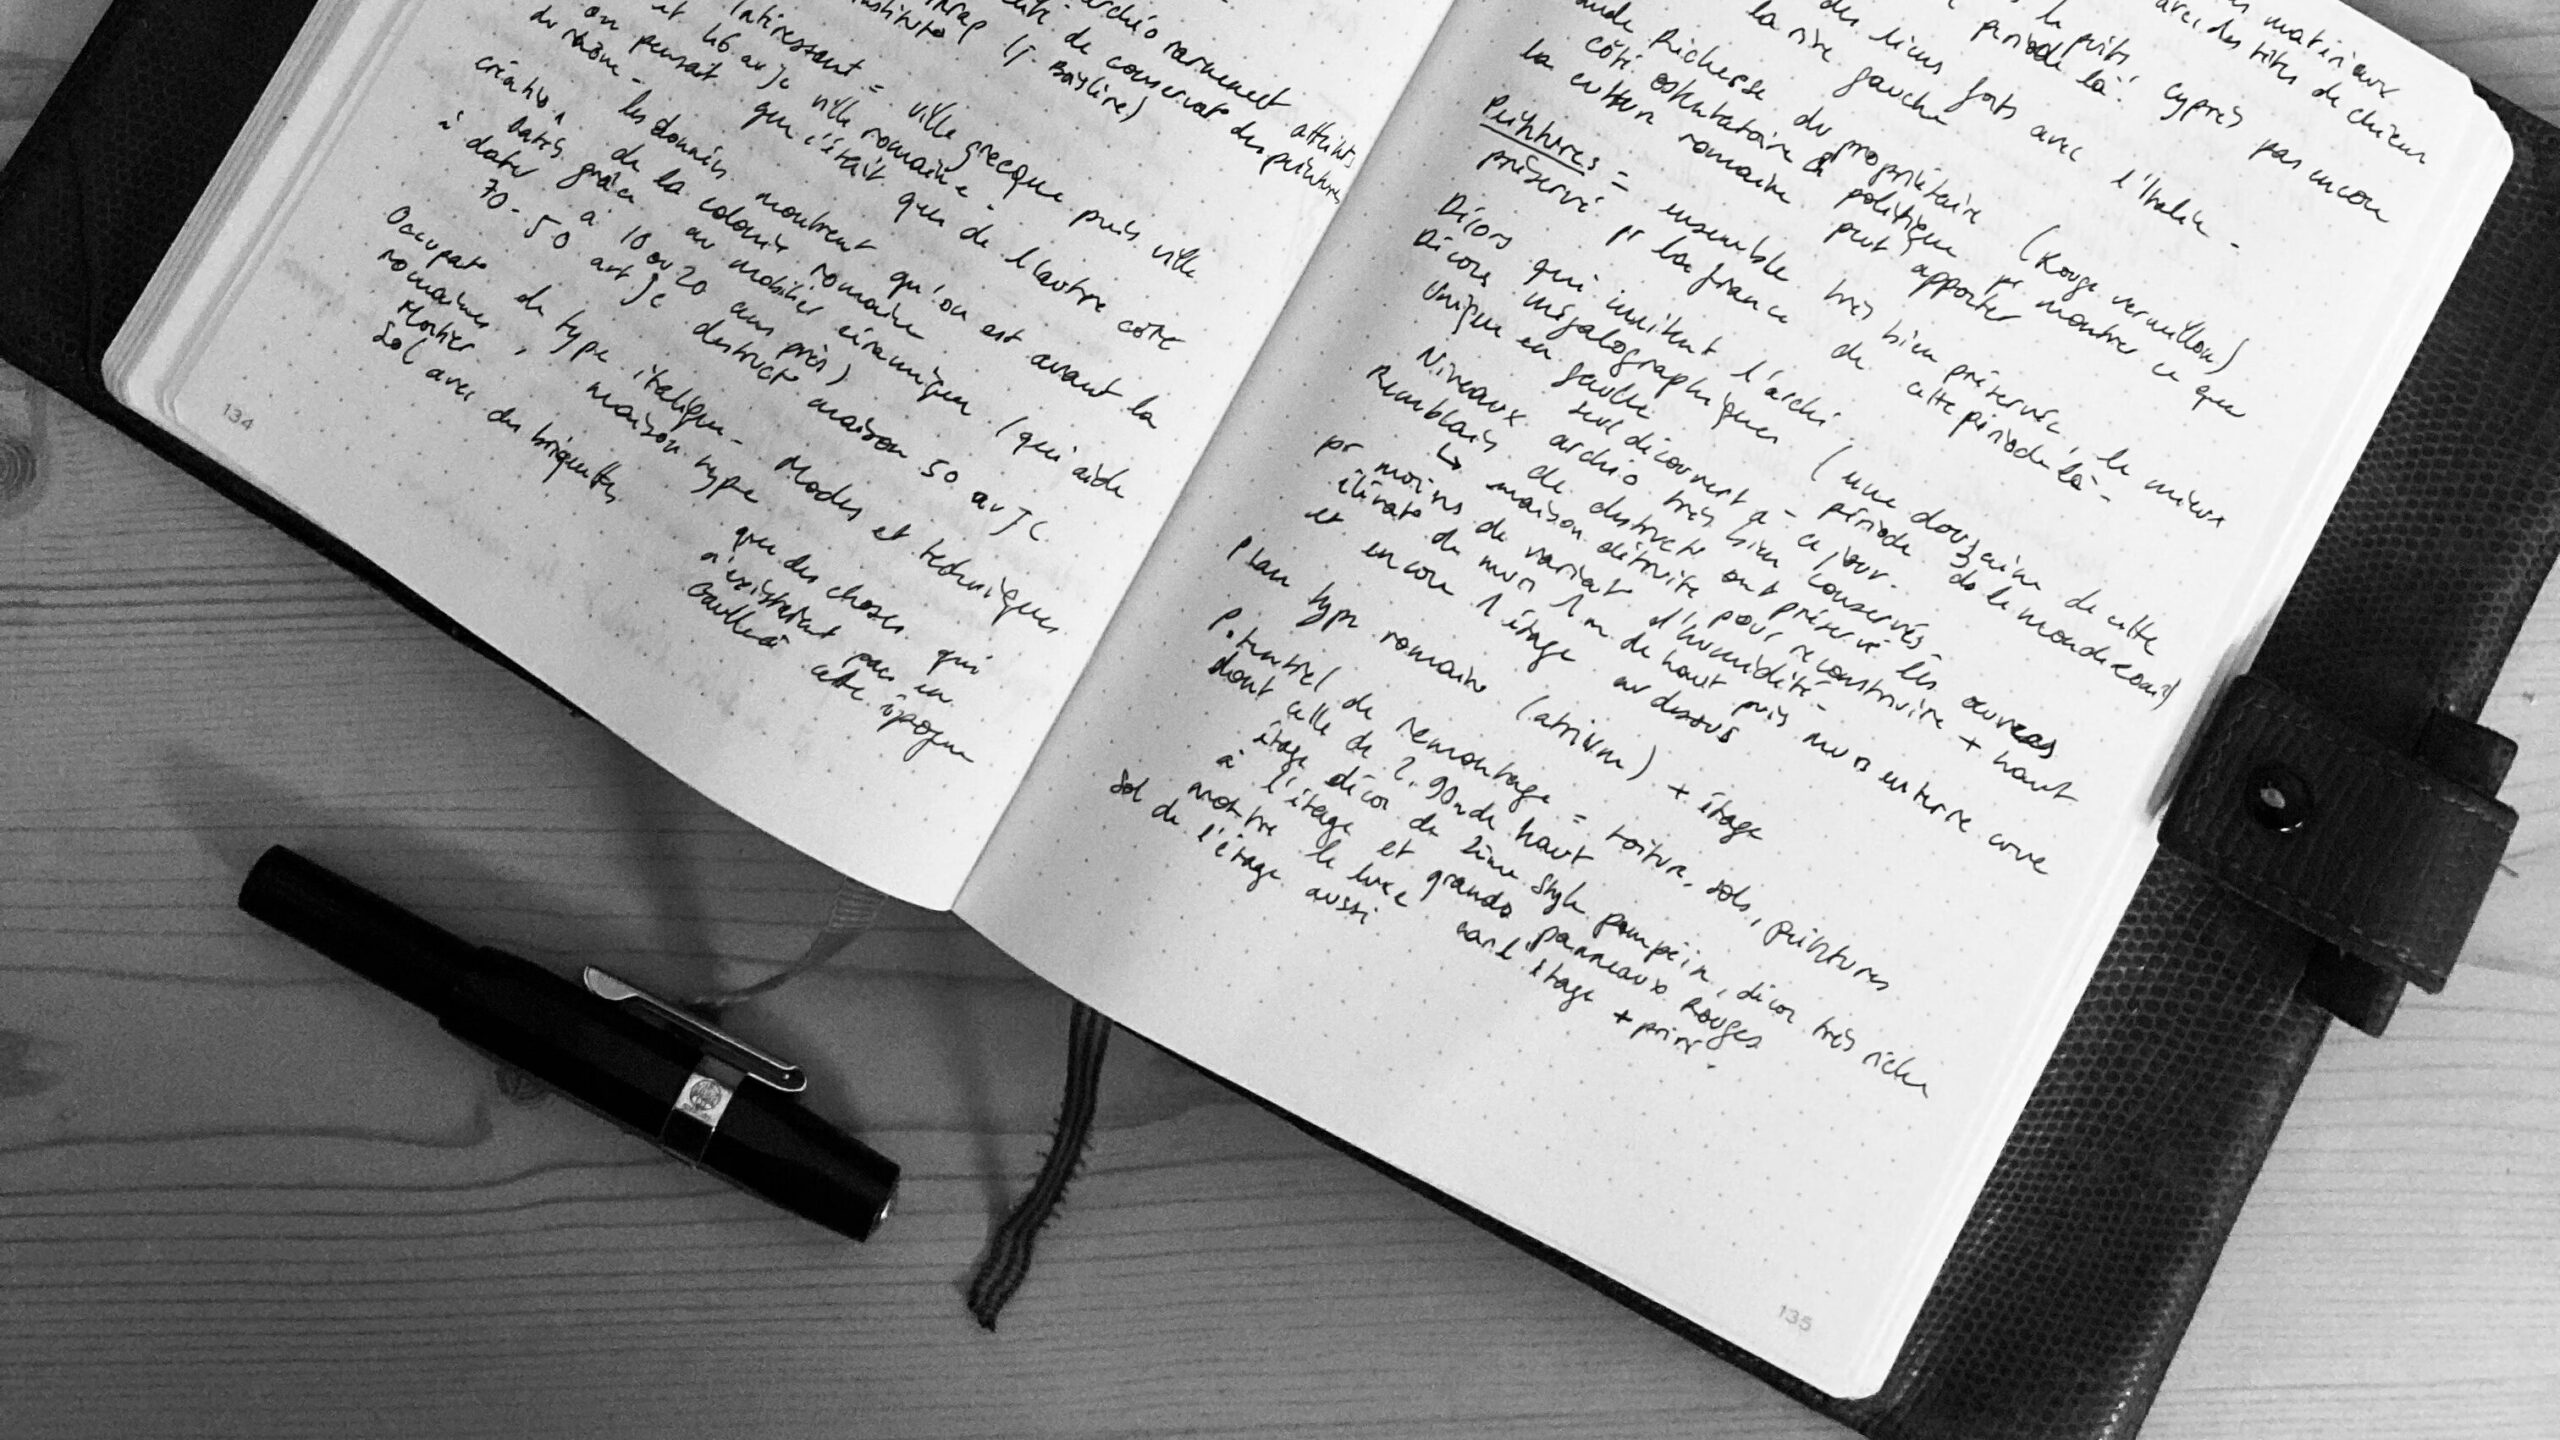 archéo rarement attints
de conservat des peintures
Inrap (J. Boislève)
Intéressant = ville grecque puis ville
et 46 av Jc ville romaine.
on pensait que c'était que de l'autre côté
du Rhône - les données montrent qu'on est avant la
créatio de la colonie romaine
Datés grâce au mobilier céramique (qui aide
à dater à 10 ou 20 ans près)
70-50 avt Jc destruct maison 50 av JC
Occupat de type italique - Modes et techniques
romaines, maison type
Mortier
Sol avec des briquettes
que des choses qui
n'existaient pas en
Gaule à cette époque
134
matériaux
avec des têtes de chien
le puits cyprès pas encore
période là !
des liens forts avec l'Italie -
la rive gauche
Richesse du propriétaire (Rouge vermillon)
côté ostentatoire & politique pr montrer ce que
la culture romaine peut apporter
Peintures = ensemble très bien préservé, le mieux
préservé pr la France de cette période là -
Décors qui imitent l'archi
Décors mégalographiques (une douzaine de cette
période ds le monde rom)
Unique en Gaule seul découvert à ce jour.
Niveaux archéo très bien conservés -
Remblais de destructo ont préservé les œuvres
↳ maison détruite pour reconstruire + haut
pr moins de variat d'humidité -
étirato de murs 1m de haut puis murs en terre crue
et encore 1 étage au dessus
Plan type romaine (atrium) + étage
Potentiel de remontage = toiture, sols, peintures
dont celle de 2.90m de haut
étage décor de 2ème style pompéin, décor très riche
à l'étage et grands panneaux Rouges
montre le luxe car l'étage + privé.
Sol de l'étage aussi
135